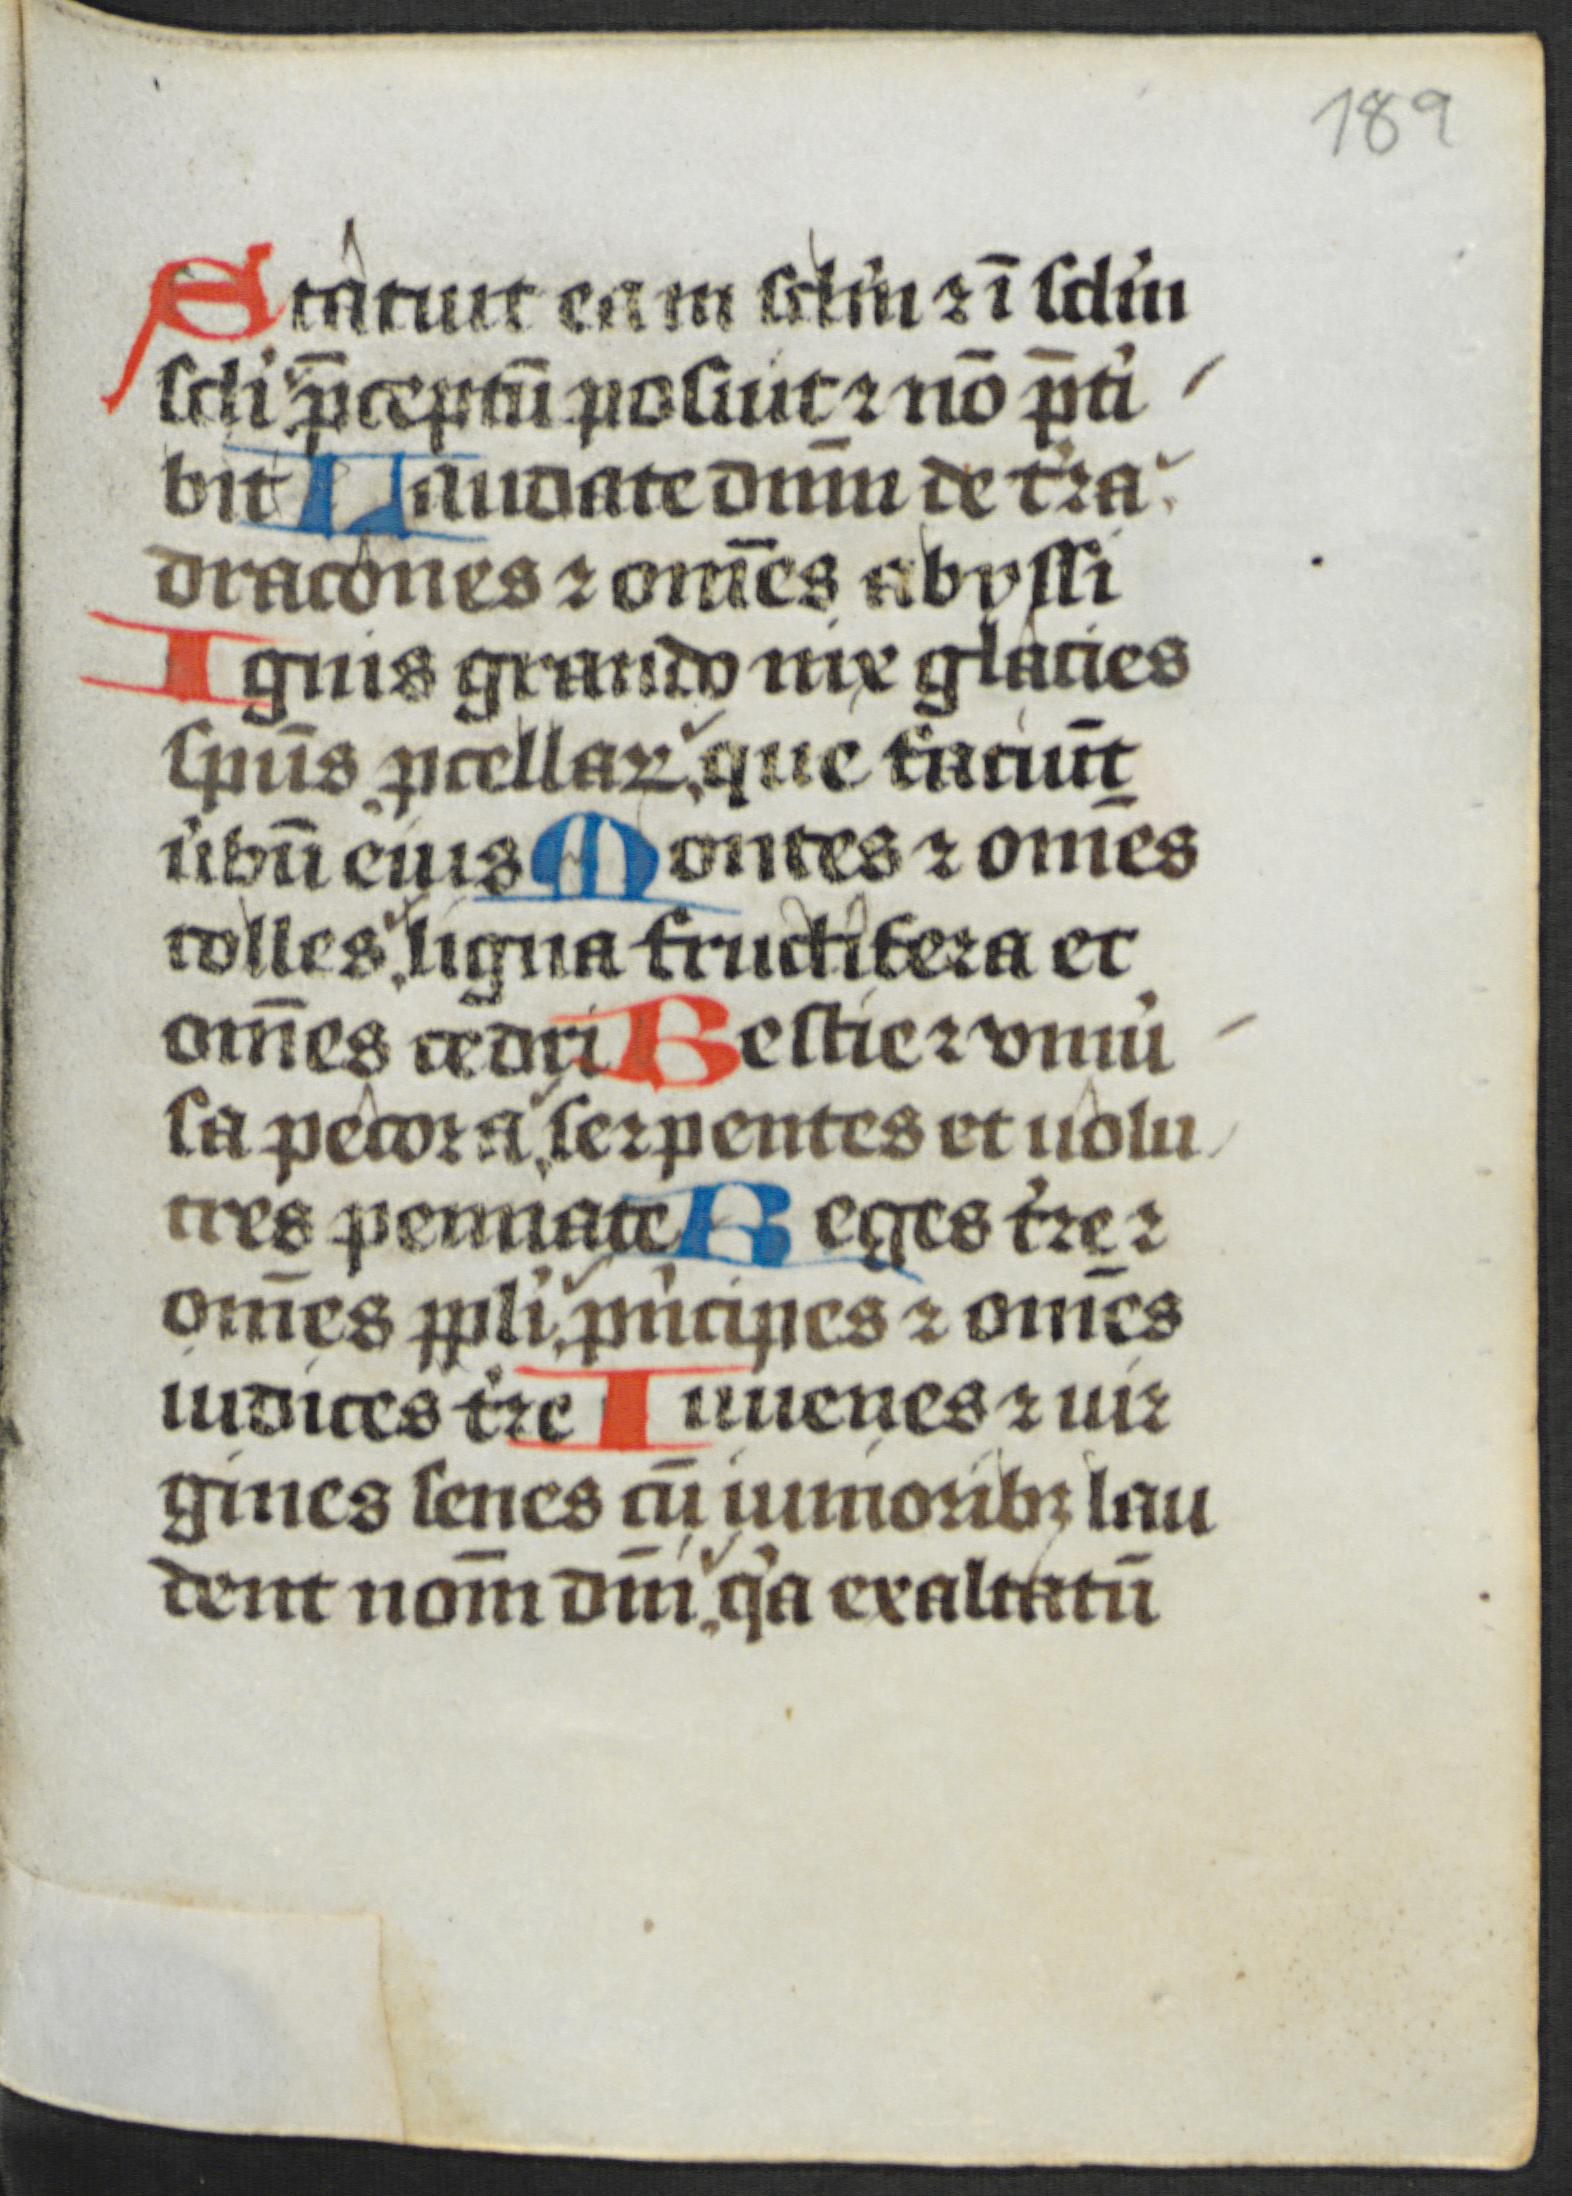 189
Statuit ea in sclm ⁊ ī sclm
scli p̄ceptū posuit ⁊ nō p̄ti
bit Laudate dnm̄ de tra
dracones ⁊ om̄es abyssi
Ignis grando nix glacies
spūs pcellaꝝ que faciūt
ubū eius Montes ⁊ om̄es
colles ligna fructifera et
om̄es cedri Bestie ⁊ uniu
sa pecora serpentes et uolu
cres pennate Reges tre ⁊
om̄es ppli principes ⁊ om̄es
iudices tre Iuuenes ⁊ uir
gines senes cū iunioribꝫ lau
dent nom̄ dnī qͥa exaltatū